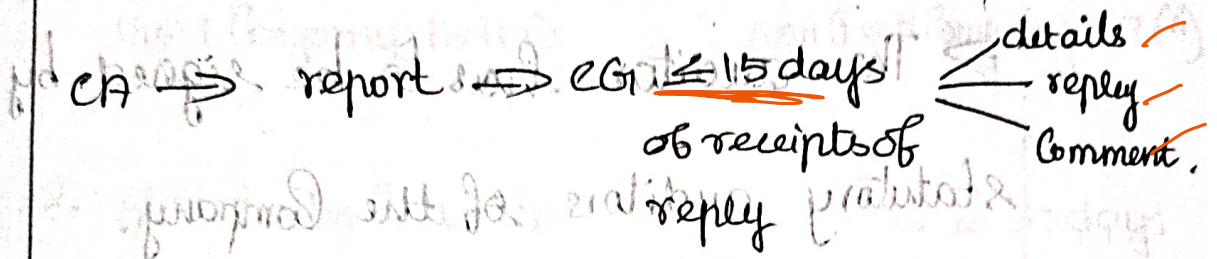 CA → report → CG ≤ 15 days
of receipts of
reply
details
reply
Comment.